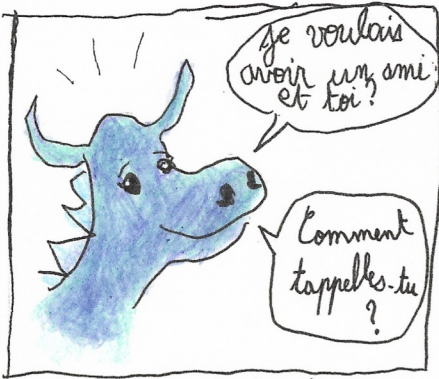 je voulais
avoir un ami
et toi?
Comment
tappelles-tu
?